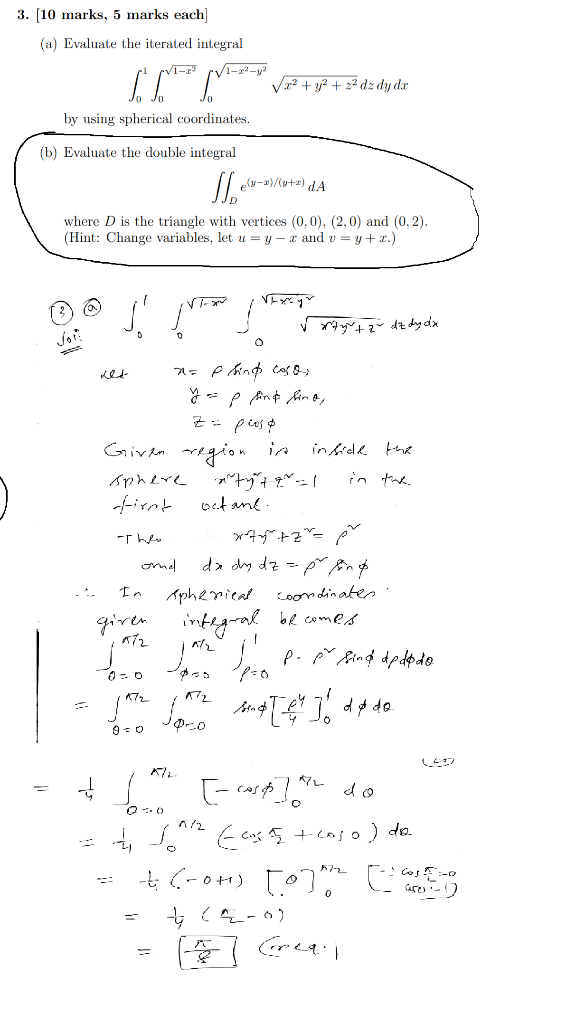 3. [10 marks, 5 marks each]
(a) Evaluate the iterated integral
∫₀¹ ∫₀^√(1−x²) ∫₀^√(1−x²−y²) √(x² + y² + z²) dz dy dx
by using spherical coordinates.
(b) Evaluate the double integral
∬_D e^((y−x)/(y+x)) dA
where D is the triangle with vertices (0, 0), (2, 0) and (0, 2).
(Hint: Change variables, let u = y − x and v = y + x.)
③ ⓐ ∫₀¹ ∫₀^√(1−x²) ∫₀^√(1−x²−y²) √(x²+y²+z²) dz dy dx
Sol:
Let x = ρ sinφ cosθ,
y = ρ sinφ sinθ,
z = ρ cosφ
Given region is inside the
sphere x²+y²+z²=1 in the
first octant.
Then x²+y²+z² = ρ²
and dx dy dz = ρ² sinφ
∴ In spherical coordinates
given integral becomes
∫_{θ=0}^{π/2} ∫_{φ=0}^{π/2} ∫_{ρ=0}^{1} ρ · ρ² sinφ dρ dφ dθ
= ∫_{θ=0}^{π/2} ∫_{φ=0}^{π/2} sinφ [ρ⁴/4]₀¹ dφ dθ
= 1/4 ∫_{θ=0}^{π/2} [−cosφ]₀^{π/2} dθ
= 1/4 ∫₀^{π/2} (−cos π/2 + cos 0) dθ
= 1/4 (−0+1) [θ]₀^{π/2} [∵ cos π/2 = 0 cos 0 = 1]
= 1/4 (π/2 − 0)
= π/8